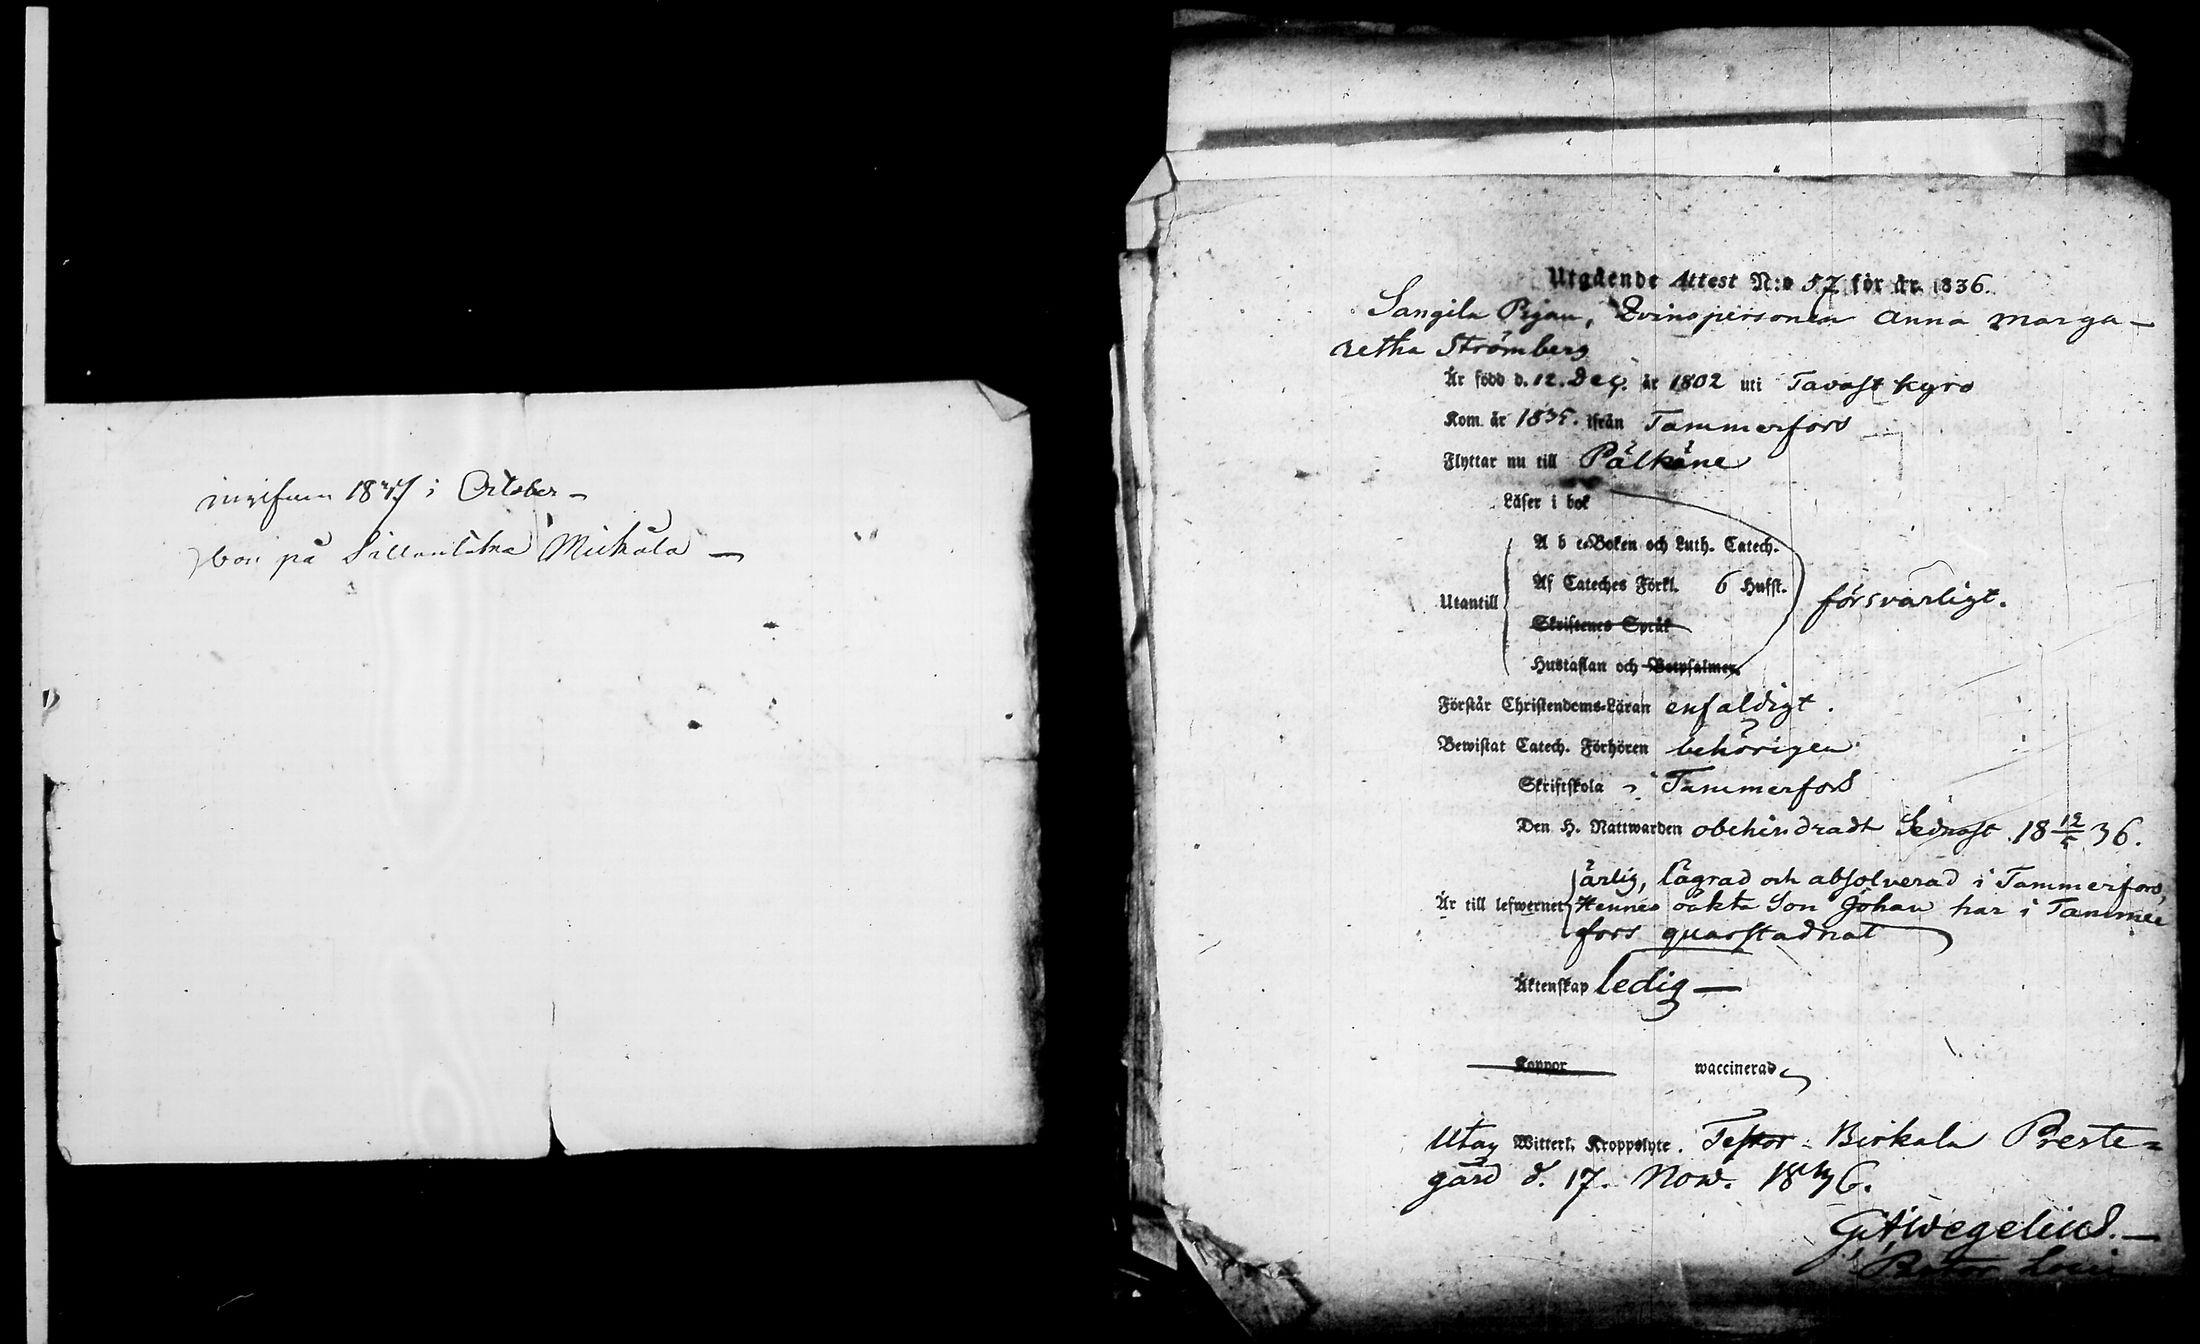 18 i October –
bor på Mickola –
Utgående Attest N:o 57 för år 1836.
Sangila Pigan, Qvinspersonen Anna Marga–
retha Strömberg
Är född d. 12. Dec. år 1802 uti Tavast kyro
Kom år 1835. ifrån Tammerfors
Flyttar nu till Pälkäne
Läser i bok
A b c-Boken och Luth. Catech.
Af Cateches Förkl. 6 Hufst.
Utantill försvarligt.
Skriftenes Språk
Hustaflan och Botpsalmer.
Förstår Christendoms-Läran enfaldigt.
Bewistat Catech. Förhören behörigen
Skriftskola i Tammerfors
Den H. Nattwarden obehindradt Sednast 18 12/5 36.
ärlig, lägrad och absolverad i Tammerfors,
Är till lefwernet Hennes oäkta Son Johan har i Tammer
fors quarstadnat
Äktenskap ledig —
Koppor waccinerad
Utan Witterl. Kroppslyte. Birkala Preste=
gård d. 17. Nov. 1836.
G A Wegelius. —
Pastor Loci